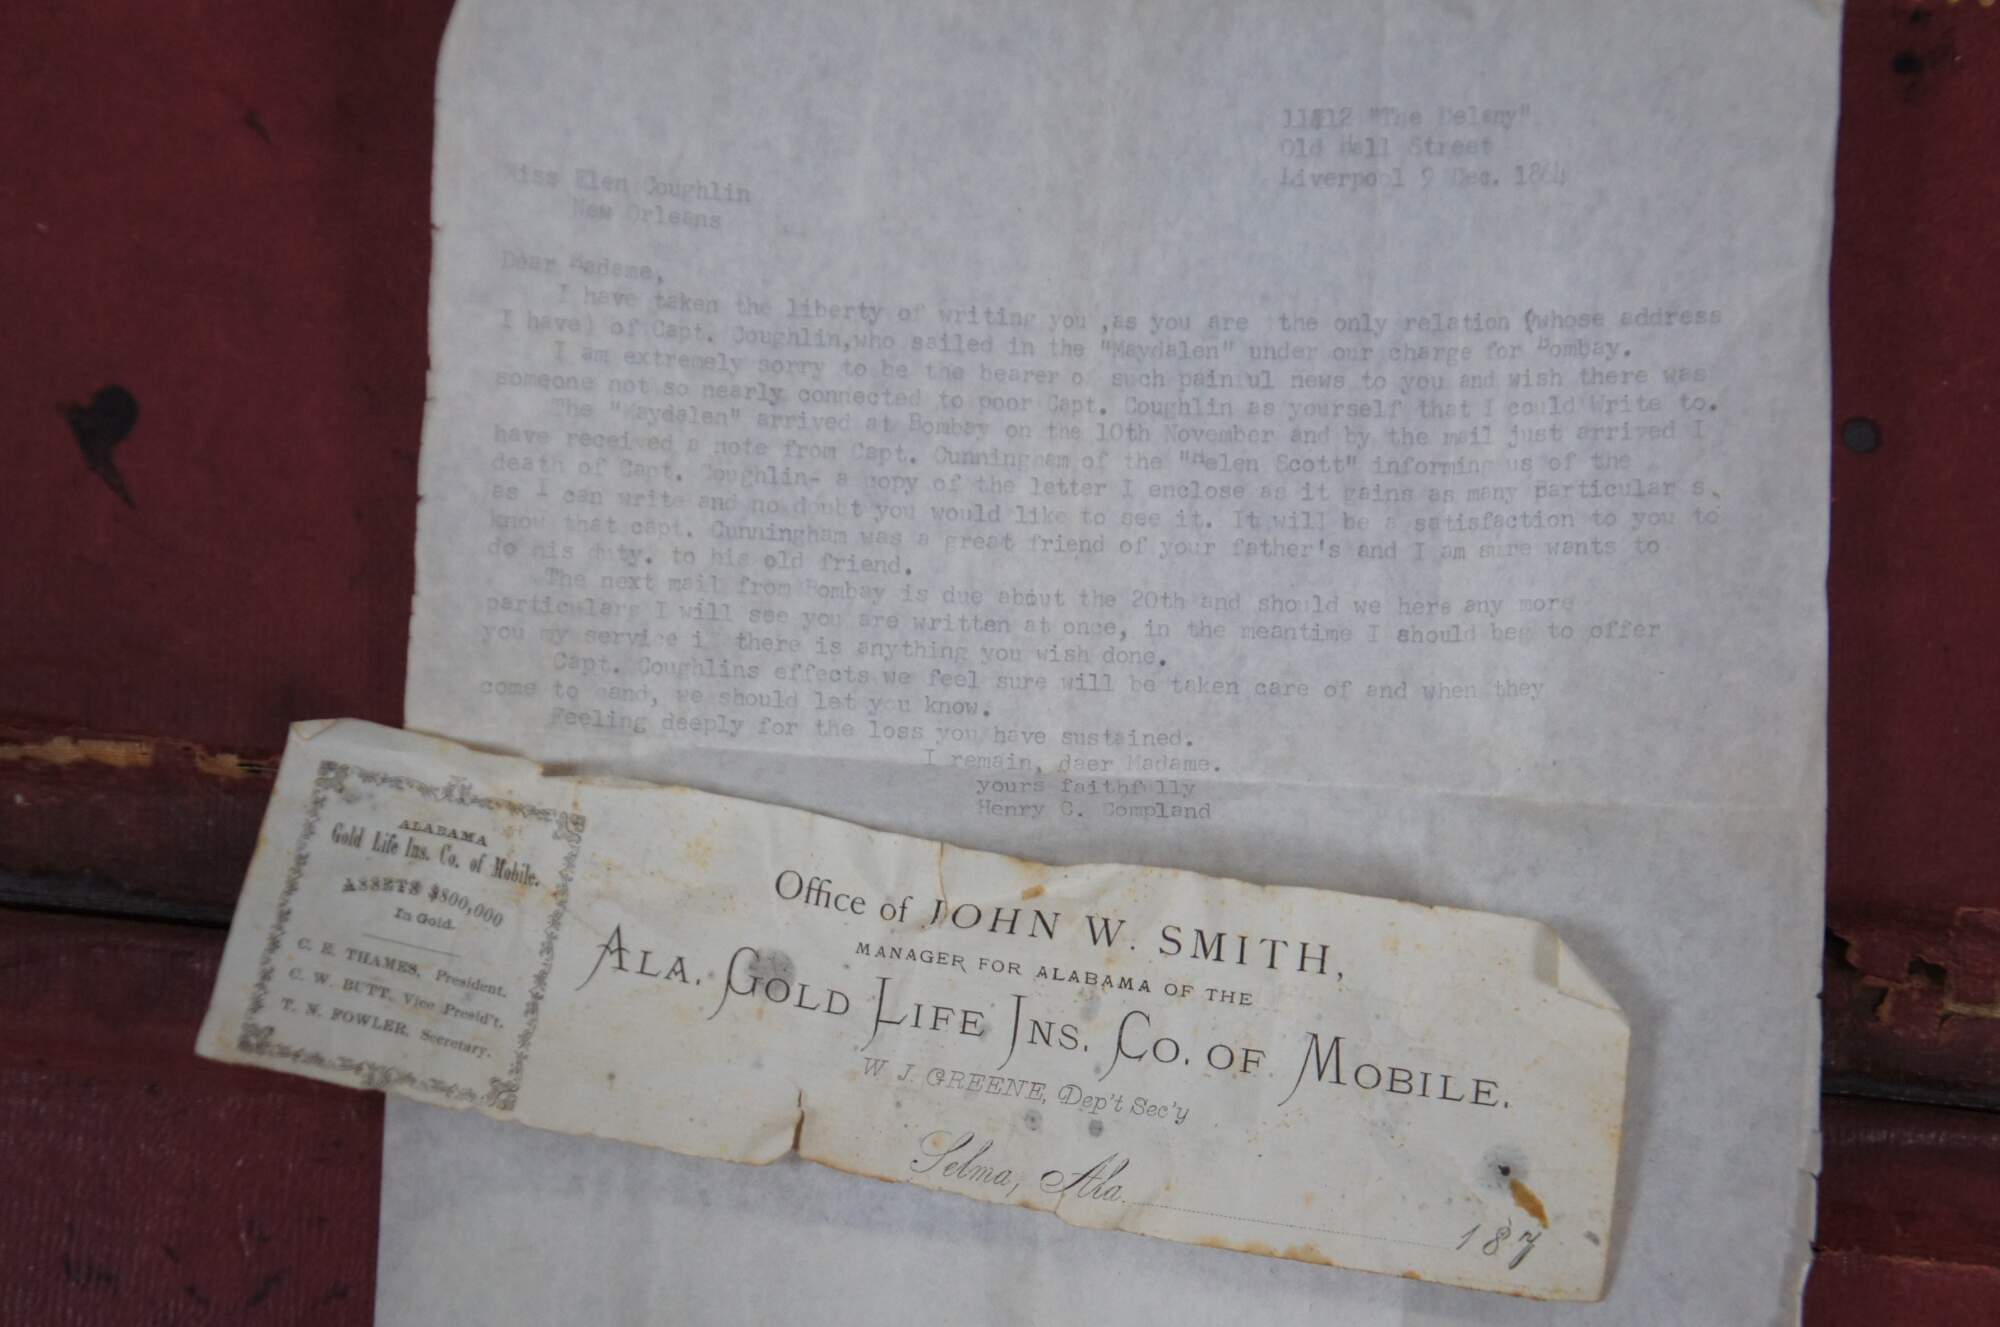 11812 "The Delany"
Old Hall Street
Liverpool 9 Dec. 1864
Miss Elen Coughlin
New Orleans
Dear Madame,
I have taken the liberty of writing you ,as you are the only relation (whose address
I have) of Capt. Coughlin,who sailed in the "Maydalen" under our charge for Bombay.
I am extremely sorry to be the bearer of such painful news to you and wish there was
someone not so nearly connected to poor Capt. Coughlin as yourself that I could Write to.
The "Maydalen" arrived at Bombay on the 10th November and by the mail just arrived I
have received a note from Capt. Cunningham of the "Helen Scott" informing us of the
death of Capt. Coughlin- a copy of the letter I enclose as it gains as many particular s.
as I can write and no doubt you would like to see it. It will be a satisfaction to you to
know that capt. Cunningham was a great friend of your father's and I am sure wants to
do his duty. to his old friend.
The next mail from Bombay is due about the 20th and should we here any more
particulars I will see you are written at once, in the meantime I should beg to offer
you my service if there is anything you wish done.
Capt. Coughlins effects we feel sure will be taken care of and when they
come to hand, we should let you know.
Feeling deeply for the loss you have sustained.
I remain, daer Madame.
yours faithfully
Henry C. Compland
ALABAMA
Gold Life Ins. Co. of Mobile.
ASSETS $800,000
In Gold.
C. E. THAMES, President.
C. W. BUTT, Vice Presid't.
T. N. FOWLER, Secretary.
Office of JOHN W. SMITH,
MANAGER FOR ALABAMA OF THE
ALA. GOLD LIFE INS. CO. OF MOBILE.
W. J. GREENE, Dep't Sec'y
Selma, Ala. 187